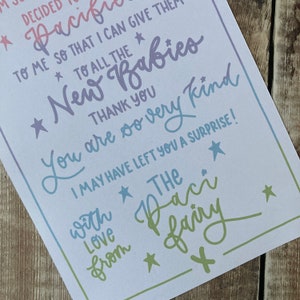 DECIDED TO
Pacifie
TO ME SO THAT I CAN GIVE THEM
TO ALL THE
New Babies
THANK YOU
You are so very Kind
I MAY HAVE LEFT YOU A SURPRISE!
with
LOVE
from
THE
Paci
fairy
X